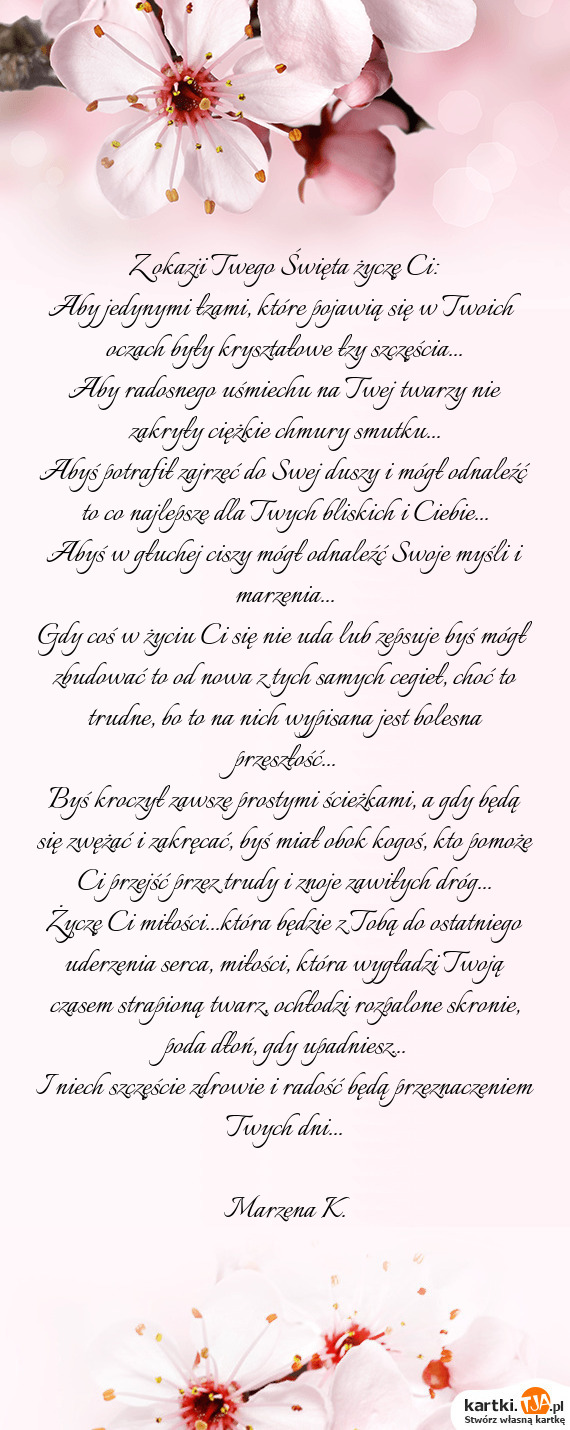 Z okazji Twego Święta życzę Ci:
Aby jedynymi łzami, które pojawią się w Twoich
oczach były kryształowe łzy szczęścia...
Aby radosnego uśmiechu na Twej twarzy nie
zakryły ciężkie chmury smutku...
Abyś potrafił zajrzeć do Swej duszy i mógł odnaleźć
to co najlepsze dla Twych bliskich i Ciebie...
Abyś w głuchej ciszy mógł odnaleźć Swoje myśli i
marzenia...
Gdy coś w życiu Ci się nie uda lub zepsuje byś mógł
zbudować to od nowa z tych samych cegieł, choć to
trudne, bo to na nich wypisana jest bolesna
przeszłość...
Byś kroczył zawsze prostymi ścieżkami, a gdy będą
się zwężać i zakręcać, byś miał obok kogoś, kto pomoże
Ci przejść przez trudy i znoje zawiłych dróg...
Życzę Ci miłości...która będzie z Tobą do ostatniego
uderzenia serca, miłości, która wygładzi Twoją
czasem strapioną twarz, ochłodzi rozpalone skronie,
poda dłoń, gdy upadniesz...
I niech szczęście zdrowie i radość będą przeznaczeniem
Twych dni...
Marzena K.
kartki.TJA.pl
Stwórz własną kartkę